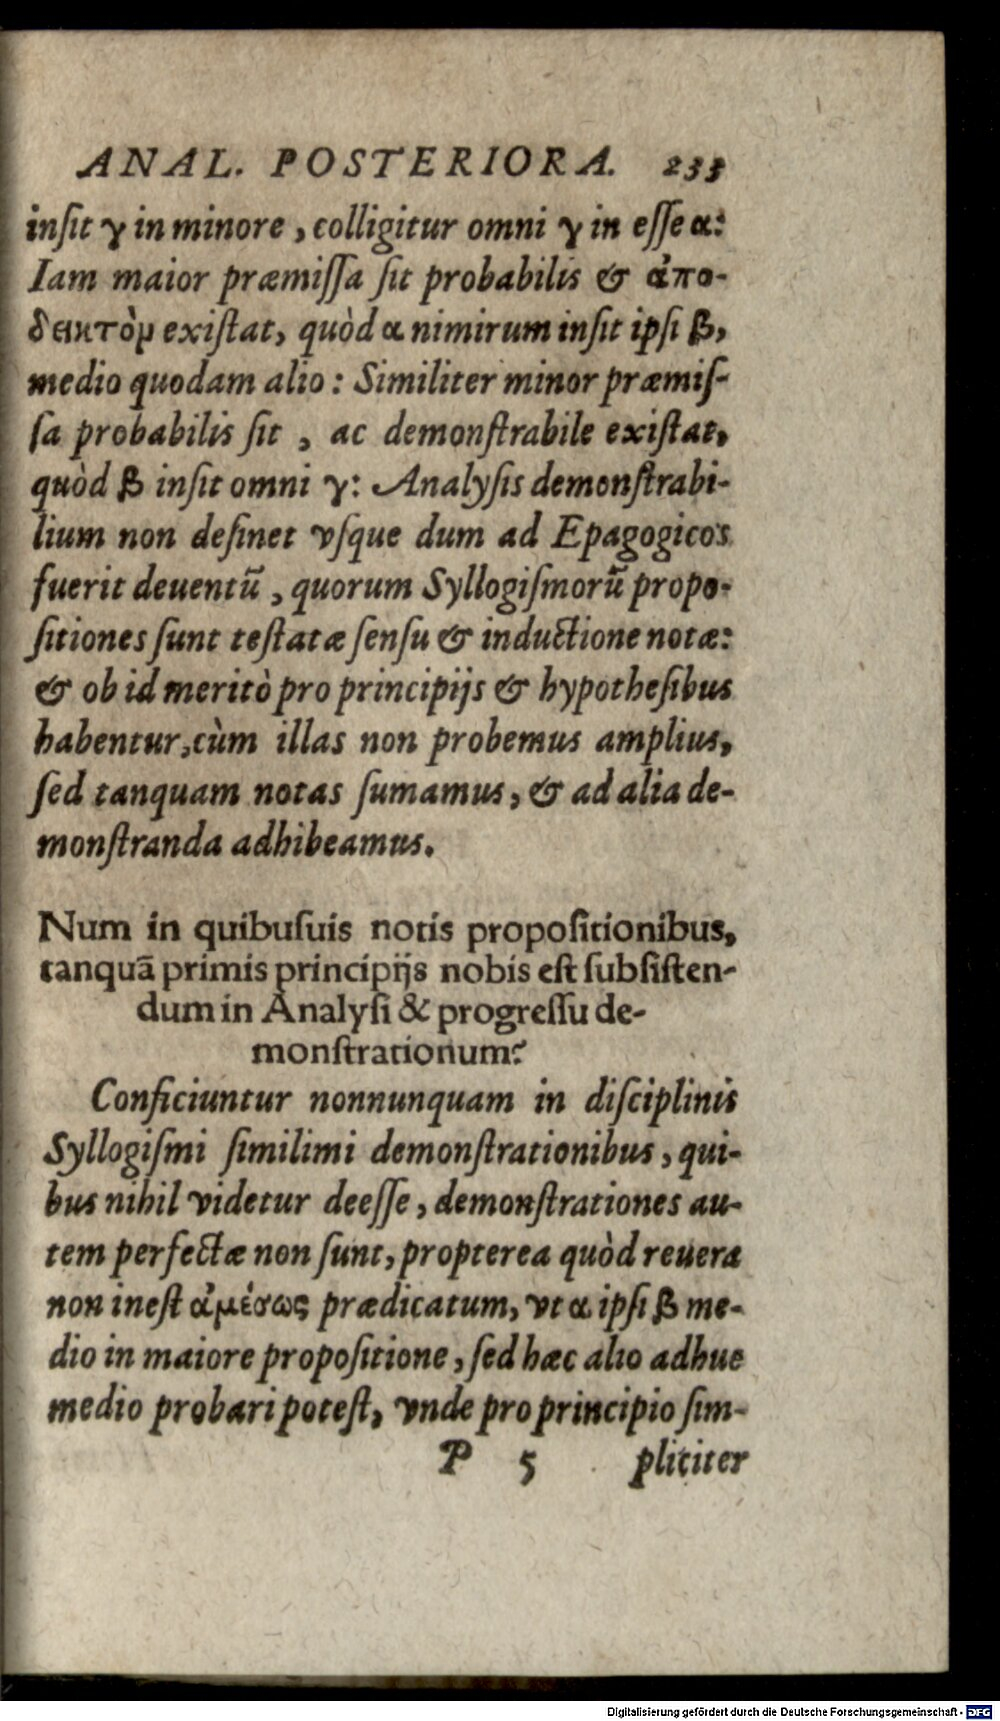 ANAL. POSTERIORA. 233
inſit γ in minore, colligitur omni γ in eſſe α:
Iam maior præmiſſa ſit probabilis & ἀπο-
δεικτὸμ exiſtat, quòd α nimirum inſit ipſi β,
medio quodam alio: Similiter minor præmiſ-
ſa probabilis ſit, ac demonſtrabile exiſtat,
quòd β inſit omni γ: Analyſis demonſtrabi-
lium non deſinet vſque dum ad Epagogicos
fuerit deuentũ, quorum Syllogiſmorũ propo-
ſitiones ſunt teſtatæ ſenſu & inductione notæ:
& ob id meritò pro principijs & hypotheſibus
habentur, cùm illas non probemus amplius,
ſed tanquam notas ſumamus, & ad alia de-
monſtranda adhibeamus.
Num in quibuſuis notis propoſitionibus,
tanquã primis principijs nobis eſt ſubſiſten-
dum in Analyſi & progreſſu de-
monſtrationum?
Conficiuntur nonnunquam in diſciplinis
Syllogiſmi ſimilimi demonſtrationibus, qui-
bus nihil videtur deeſſe, demonſtrationes au-
tem perfectæ non ſunt, propterea quòd reuera
non ineſt ἀμέσως prædicatum, vt α ipſi β me-
dio in maiore propoſitione, ſed hæc alio adhuc
medio probari poteſt, vnde pro principio ſim-
P 5 pliciter
Digitalisierung gefördert durch die Deutsche Forschungsgemeinschaft - DFG